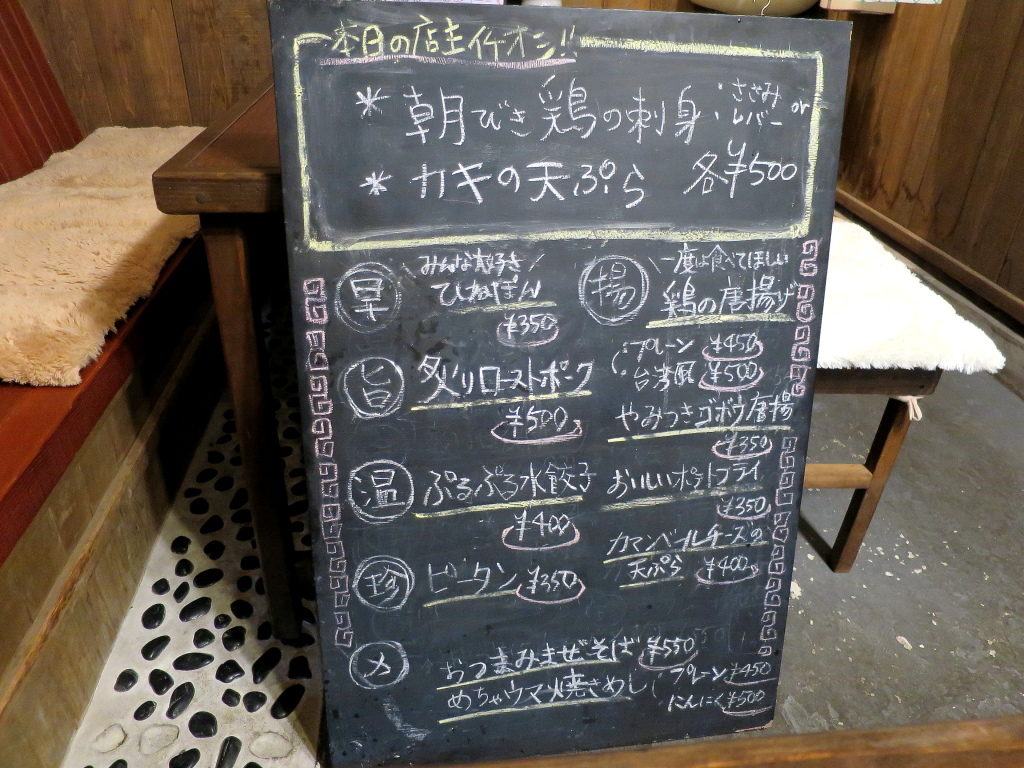 本日の店主イチオシ!!
* 朝びき鶏の刺身 ・ささみ or ・レバー
* カキの天ぷら 各¥500
早 みんな大好き
ひねぽん
¥350
旨 炙りローストポーク
¥500
温 ぷるぷる水餃子
¥400
珍 ピータン ¥350
〆 おつまみまぜそば ¥550
めちゃウマ焼きめし プレーン ¥450
にんにく ¥500
揚 一度は食べてほしい
鶏の唐揚げ
プレーン ¥450
台湾風 ¥500
やみつきゴボウ唐揚
¥350
おいしいポテトフライ
¥350
カマンベールチーズの
天ぷら ¥400